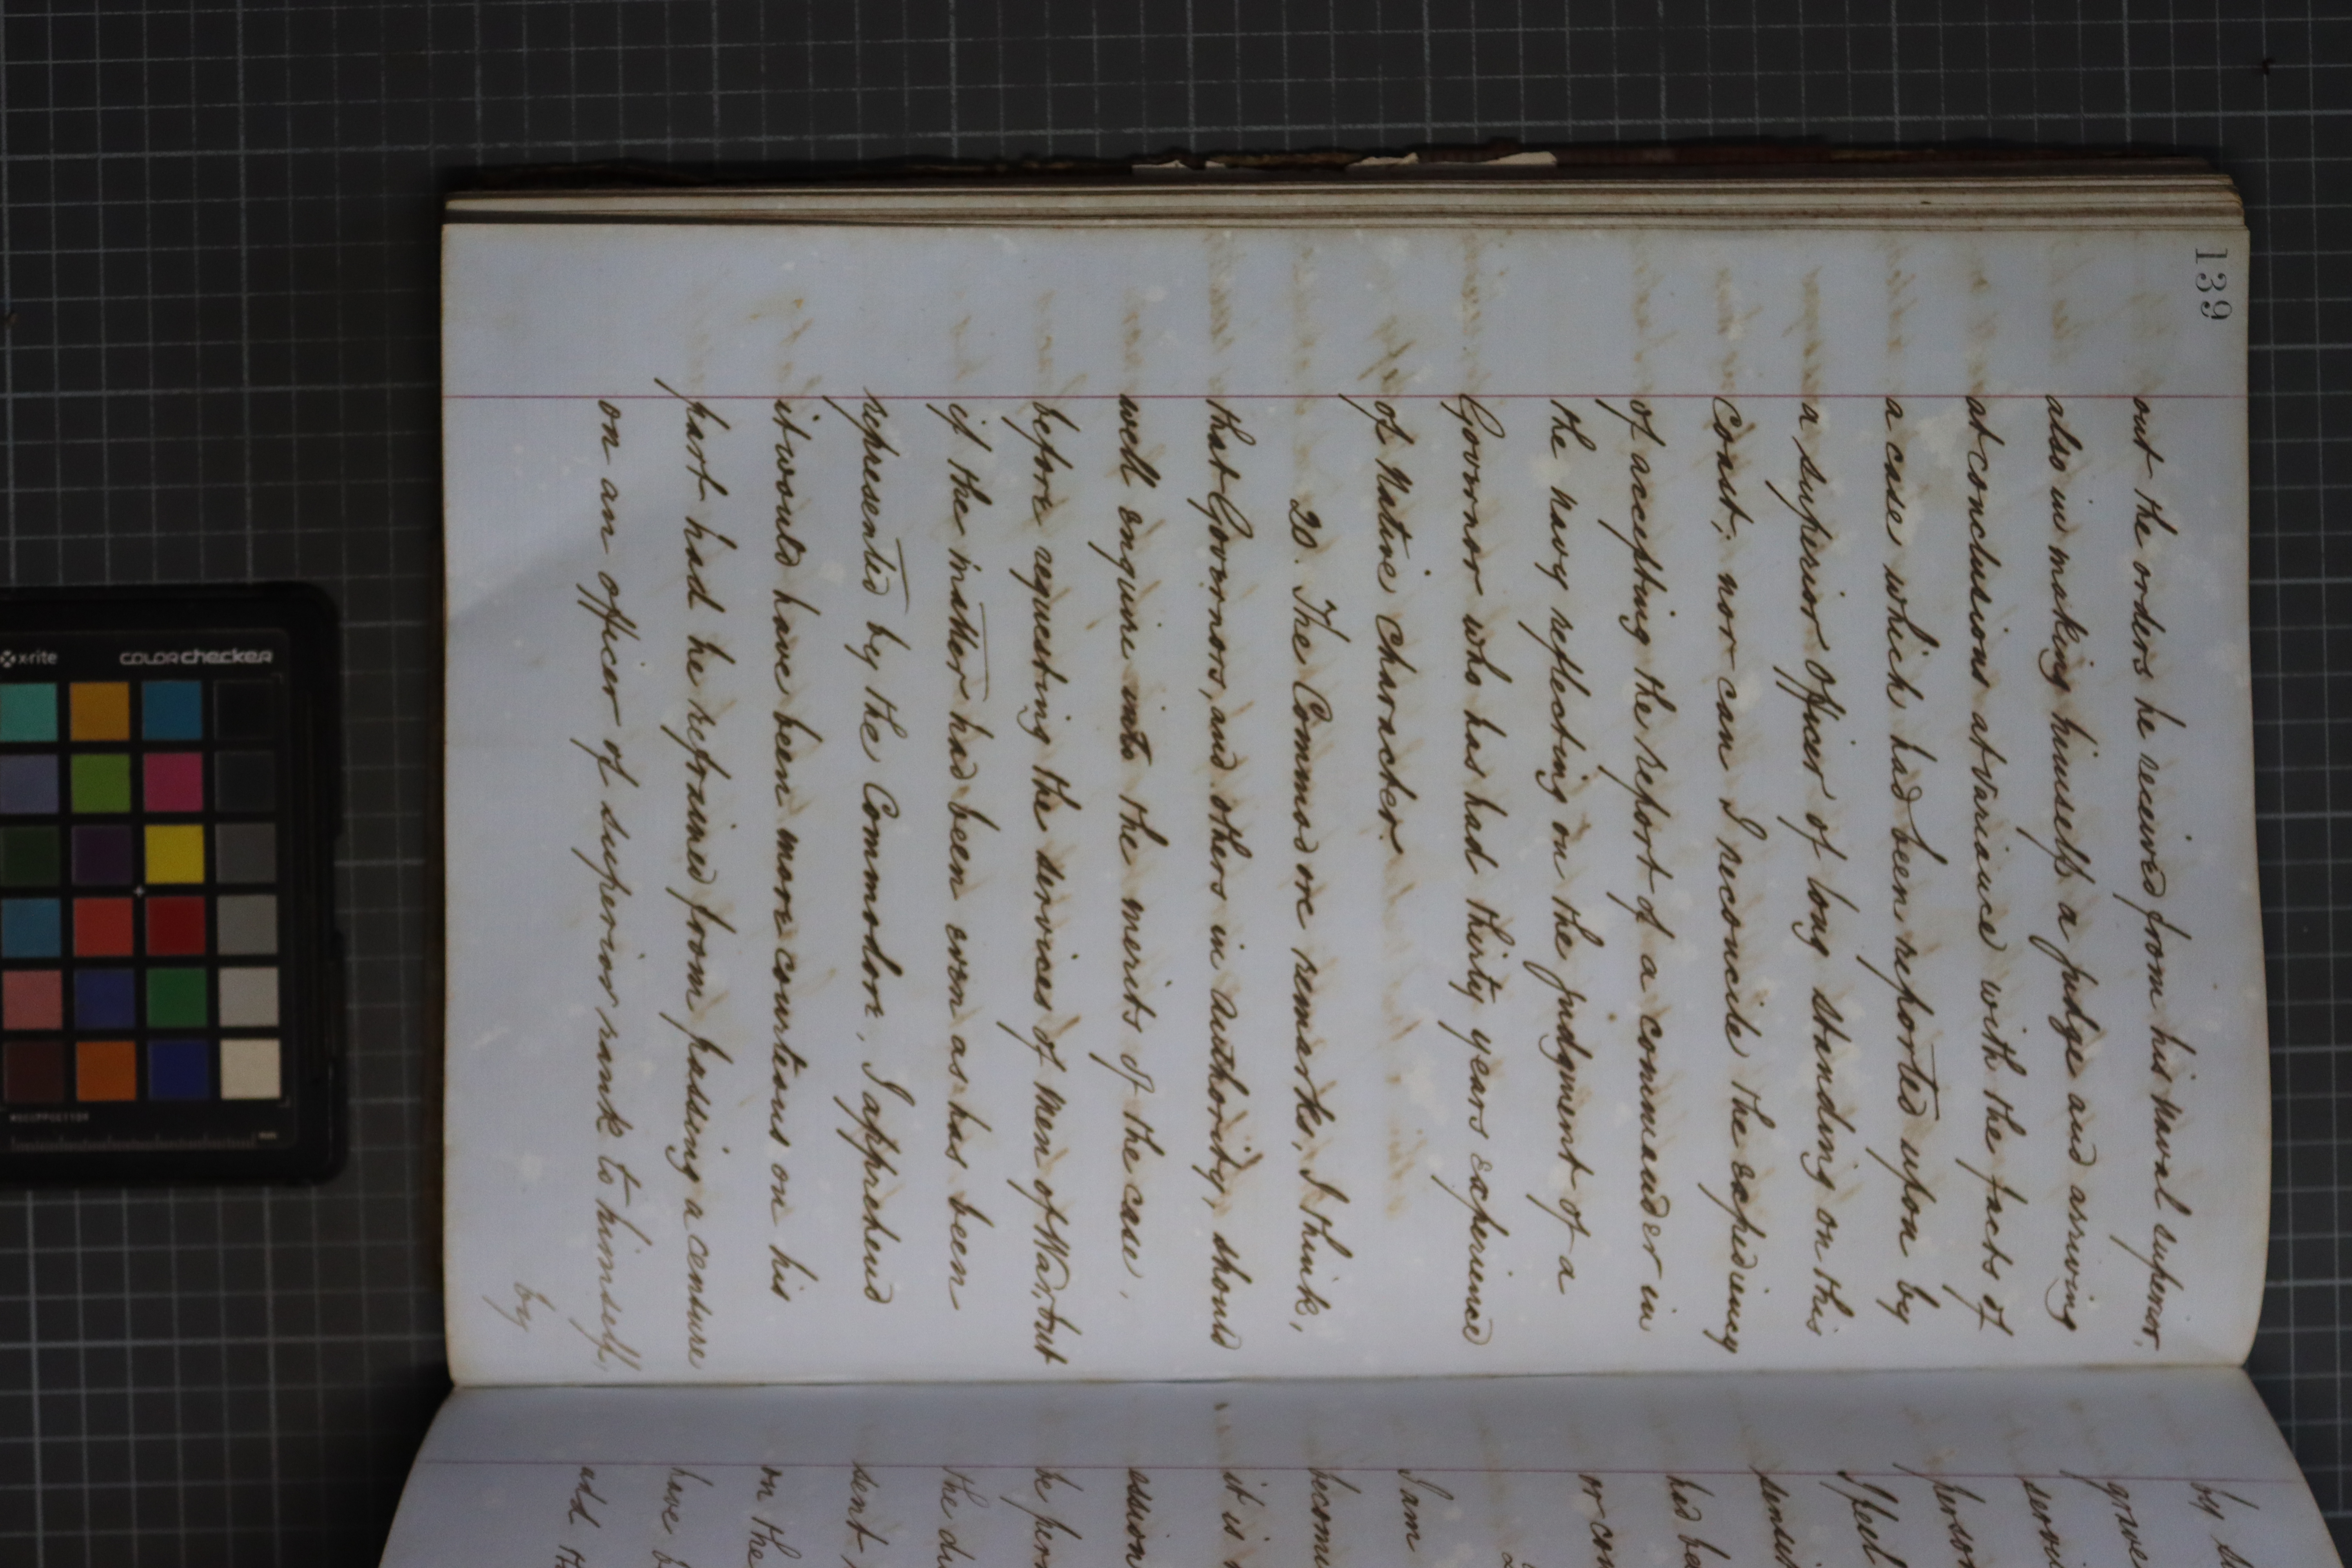 139
out the orders he received from his naval superior,
also in making himself a judge and arriving
at conclusions at variance with the facts of
a case which had been reported upon by
a superior Officer of long standing on this
Coast; nor can I reconcile the expediency
of accepting the report of a commander in
the navy reflecting on the judgment of a
Governor who has had thirty years experience
of Native Character.
20. The Commodore remarks, I think,
that Governors, and others in authority, should
well enquire into the merits of the case,
before requesting the services of Men of War, but
if the matter had been even as has been
represented by the Commodore, I apprehend
it would have been more courteous on his
part had he refrained from passing a censure
on an officer of superior rank to himself,
by
by
grave
person
I feel
had be
or con
I am
becom
it is
the
sent
on the
have b
add th
x-rite
colorchecker